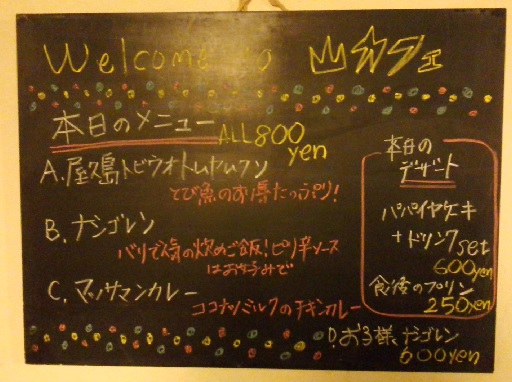 Welcome to
本日のメニュー
ALL800
yen
A.屋久島トビウオトムヤムクン
とび魚のお得たっぷり!
B.ナシゴレン
バリで人気の炊めご飯!ピリ辛ソース
はお好みで
C.マッサマンカレー
ココナツミルクのチキンカレー
本日の
デザート
パパイヤケーキ
+ドリンクset
600yen
食後のプリン
250yen
D.お子様ナシゴレン
600yen